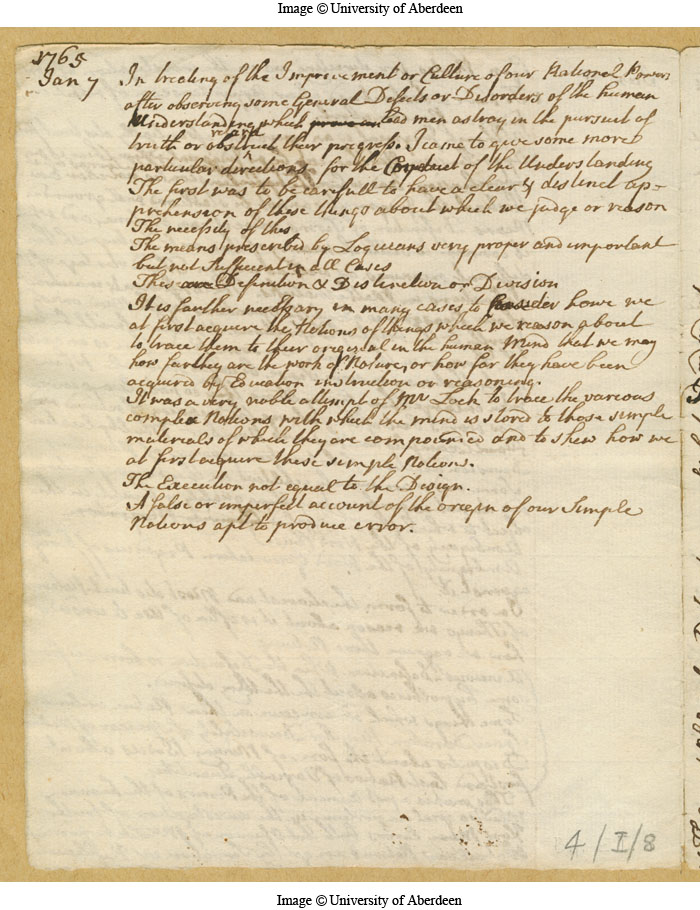 Image © University of Aberdeen
1765
Jan 7 In treating of the Improvement or Culture of our Rational Powers
after observing some General Defects or Disorders of the human
Understanding which prove an lead men astray in the pursuit of
truth or obstruct retard their progress. I came to give some more
particular directions for the Conduct of the Understanding
The first was to be carefull to have a clear & distinct ap=
prehension of these things about which we judge or reason
The necessity of this
The means prescribed by Logicians very proper and important
but not sufficient in all Cases
This are Definition & Distinction or Division
It is farther necessary in many cases to Consider howe we
at first acquire the Notions of things which we reason about
to trace them to their original in the human Mind that we may
how far they are the work of Nature, or how far they have been
acquired by Education instruction or reasoning.
It was a very noble attempt of Mr Lock to trace the various
complex Notions with which the mind is stored to those simple
materials of which they are compounded and to shew how we
at first acquire these simple Notions.
The Execution not equal to the Design.
A false or imperfect account of the origin of our Simple
Notions apt to produce error.
4/I/8
Image © University of Aberdeen